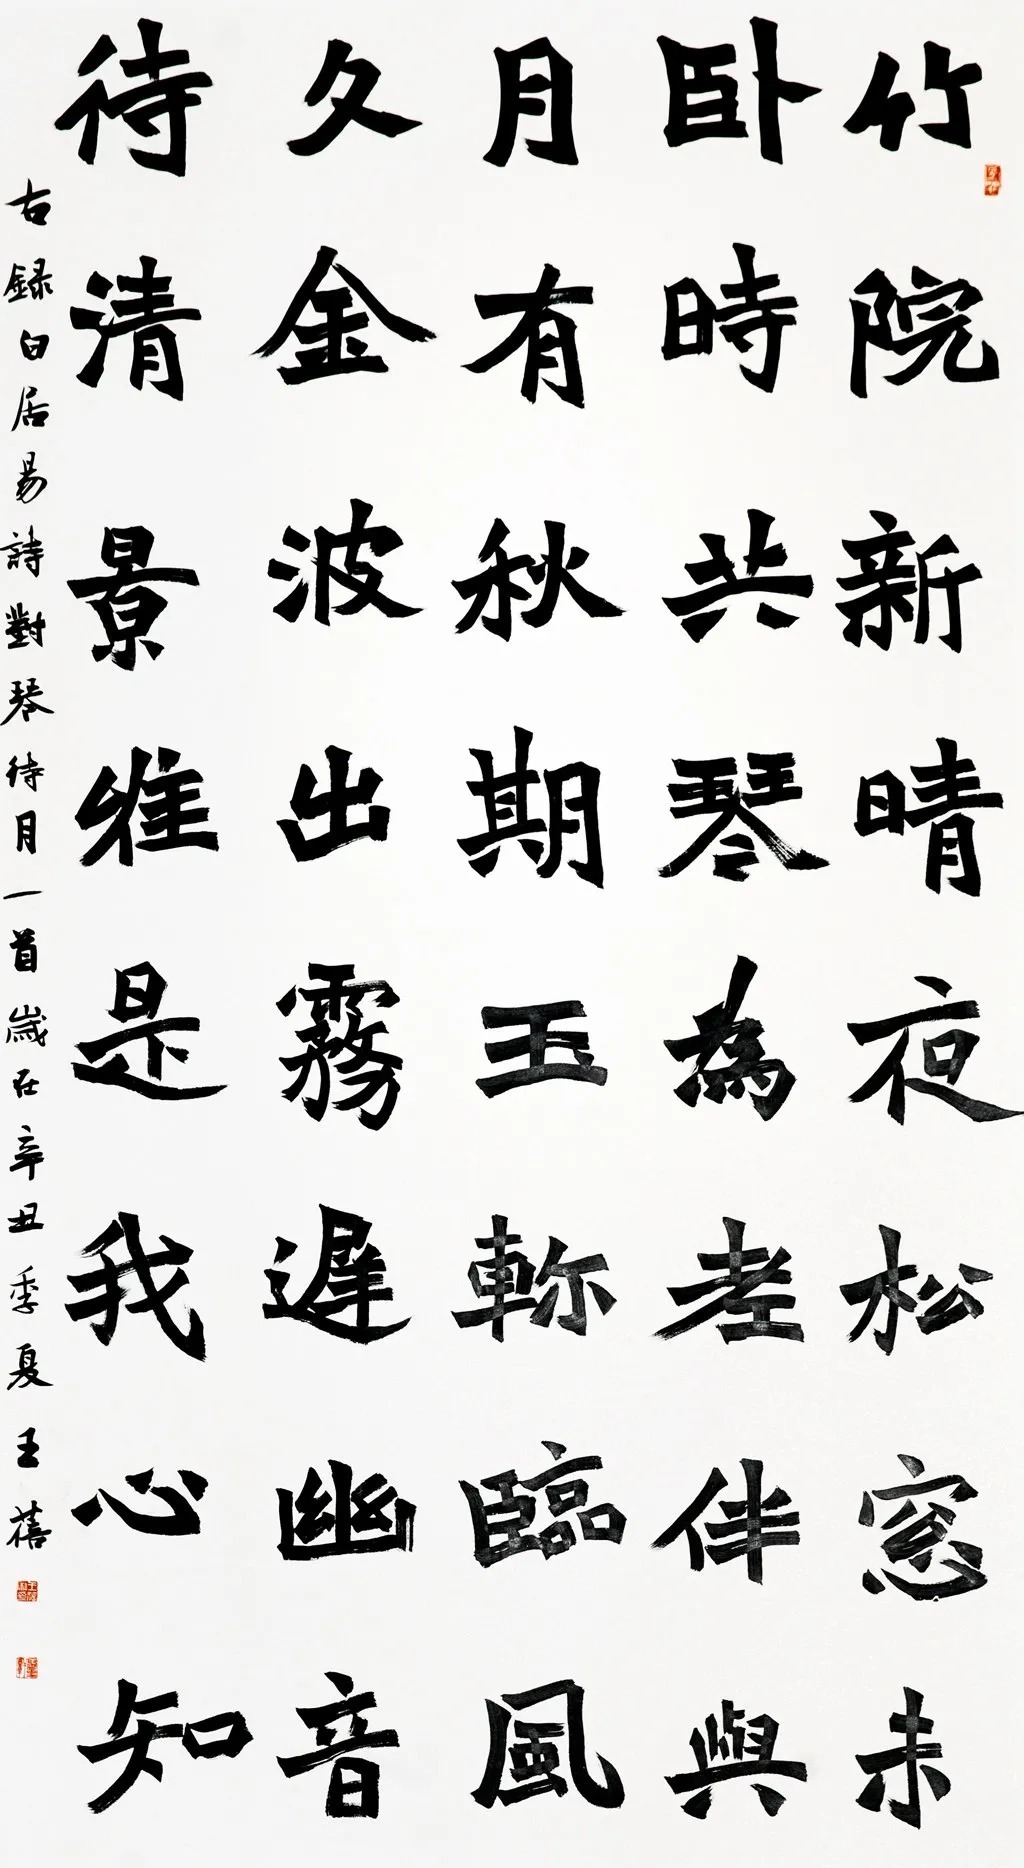 竹院新晴夜松窓未
卧時共琴為老伴與
月有秋期玉軫臨風
久金波出霧遲幽音
待清景惟是我心知
右録白居易詩對琴待月一首歲在辛丑季夏王